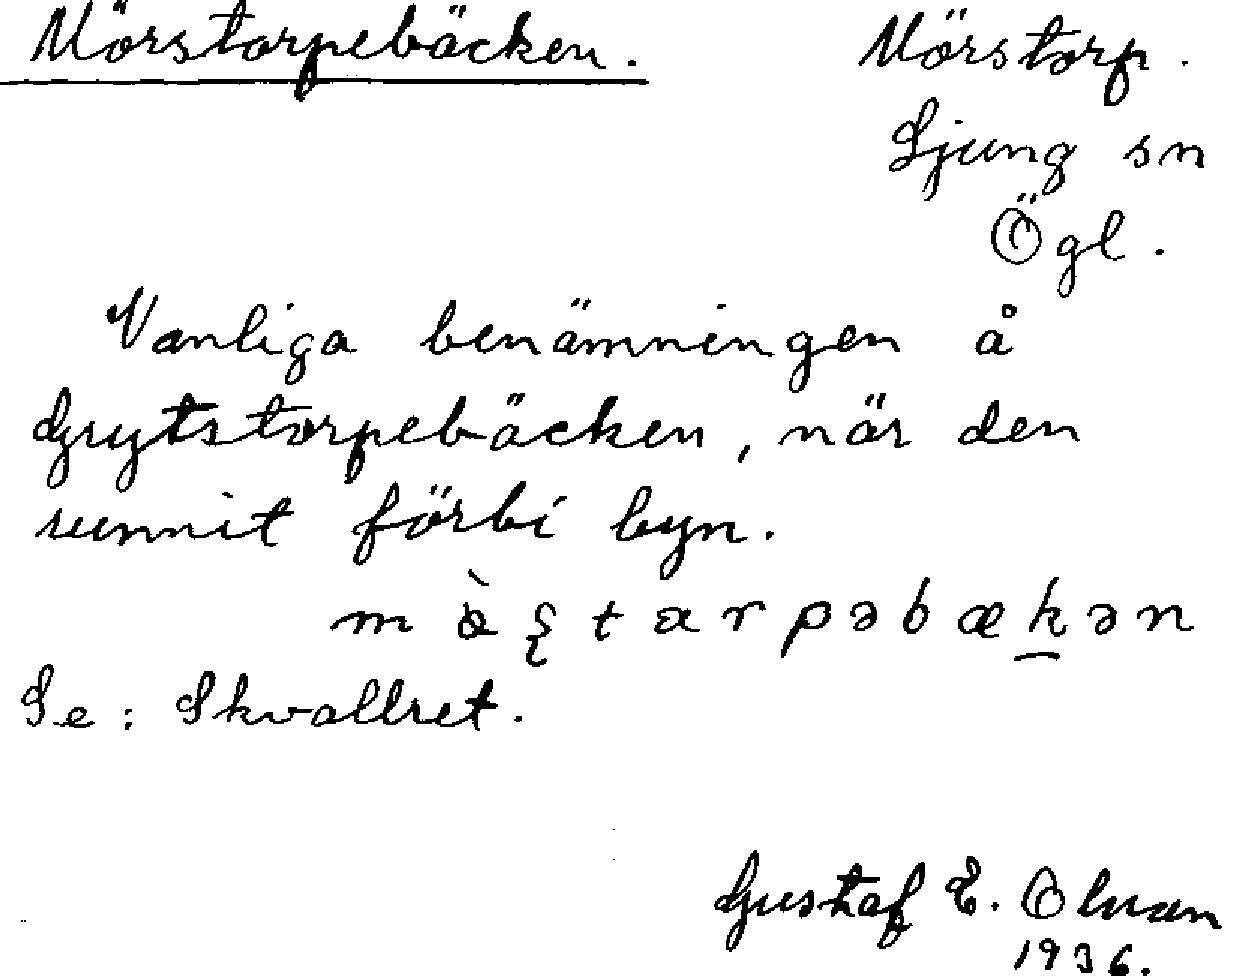 Mörstorpebäcken. Mörstorp.
Ljung sn
Ögl.
Vanliga benämningen å
Grytstorpebäcken, när den
runnit förbi byn.
Se: Skvallret.
Gustaf E.
1936.